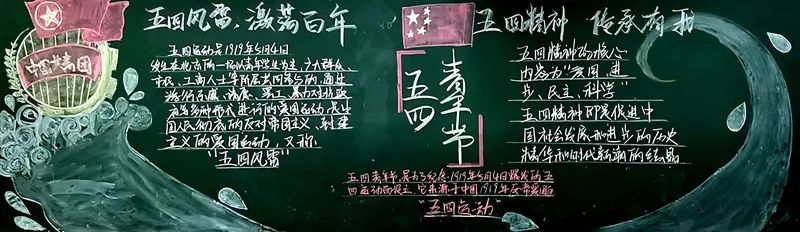 五四风雷·激荡百年
五四运动是1919年5月4日
发生在北京的一场以青年学生为主，广大群众
市民、工商人士等阶层共同参与的，通过
游行示威、请愿、罢工、暴力对抗政
府等多种形式进行的爱国运动，是中
国人民彻底的反对帝国主义、封建
主义的爱国运动，又称
“五四风雷”
中国共青团
五四
青年节
五四青年节是为了纪念1919年5月4日爆发的五
四运动而设立，它来源于中国1919年反帝爱国的
“五四运动”
五四精神 传承有我
五四精神的核心
内容为“爱国、进
步、民主、科学”
五四精神即是促进中
国社会发展和进步的历史
精华和时代新潮的结晶